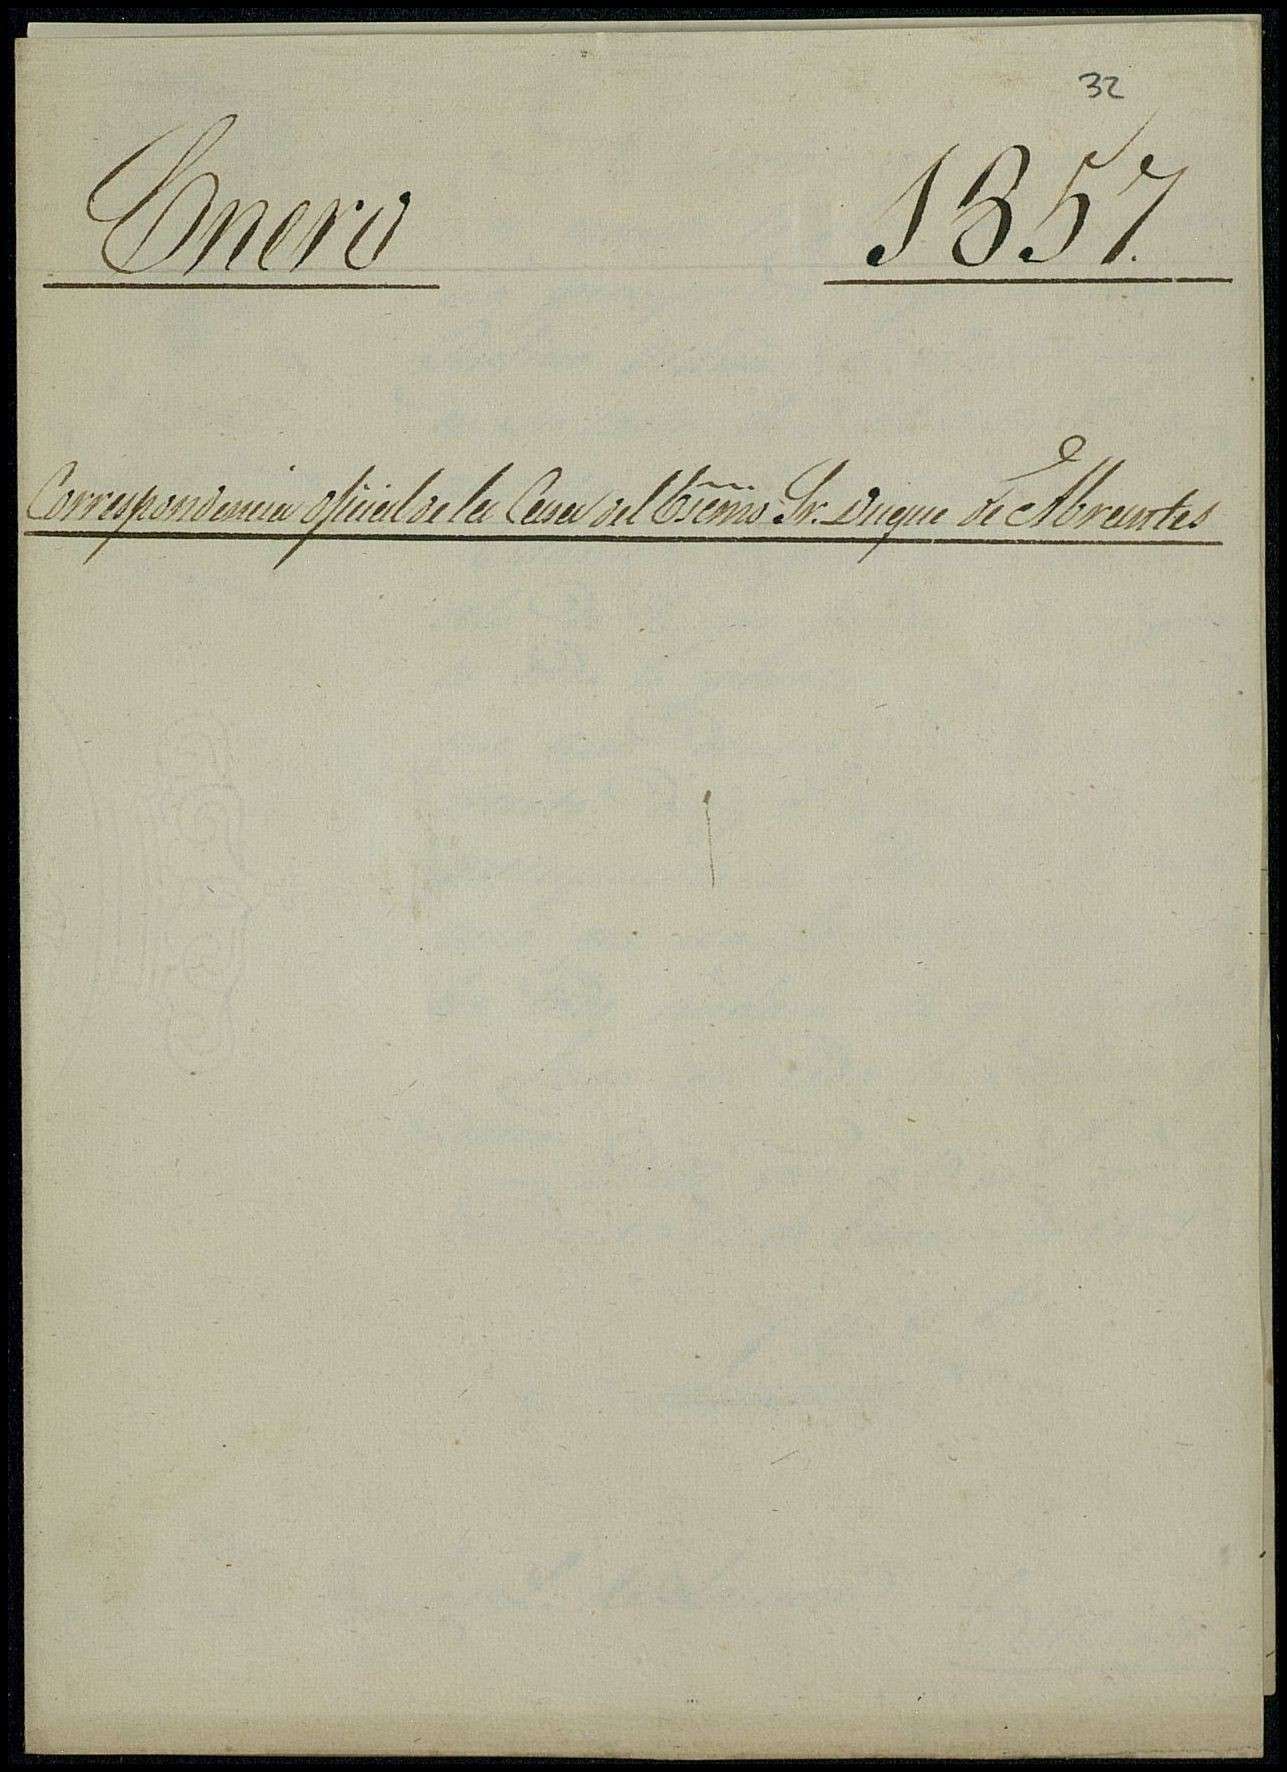 32
Enero 1857.
Correspondencia oficial de la Casa del Escmo Sr. Duque de Abrantes